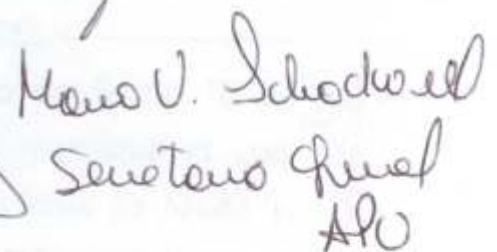 Mario V. Schodwell
Secretario Gral
APU